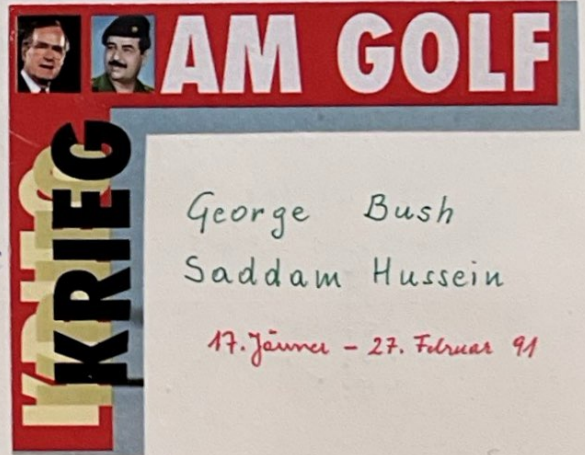 AM GOLF
KRIEG
George Bush
Saddam Hussein
17. Jänner - 27. Februar 91